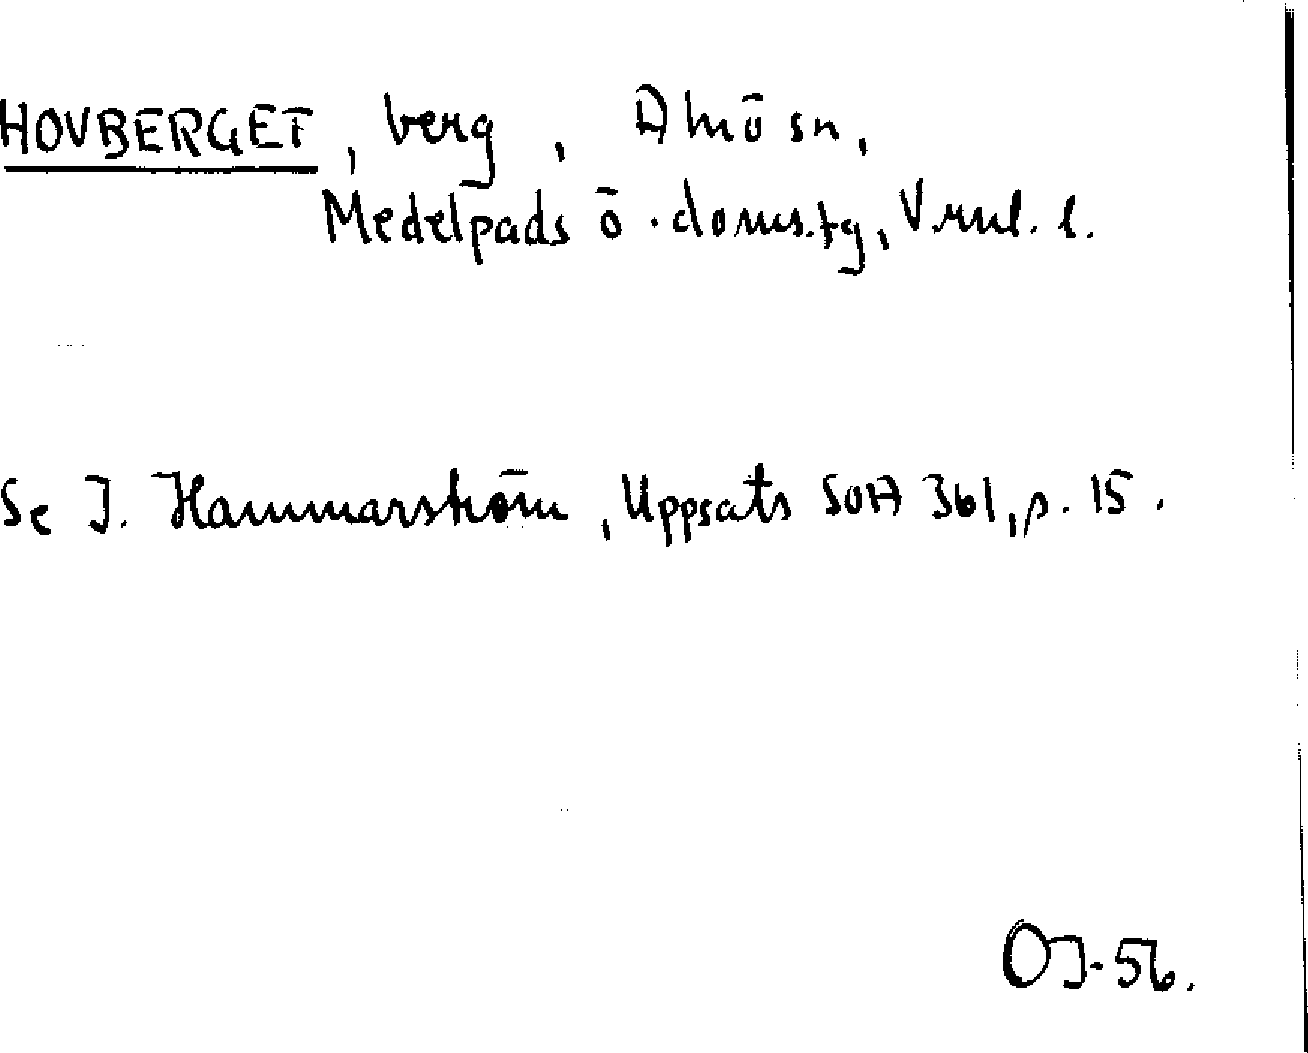 HOVBERGET, berg, Alnö sn,
Medelpads ö. doms.tg, Vrnl. l.
Se J. Hammarström, Uppsats SOA 361, p. 15.
OJ-56.